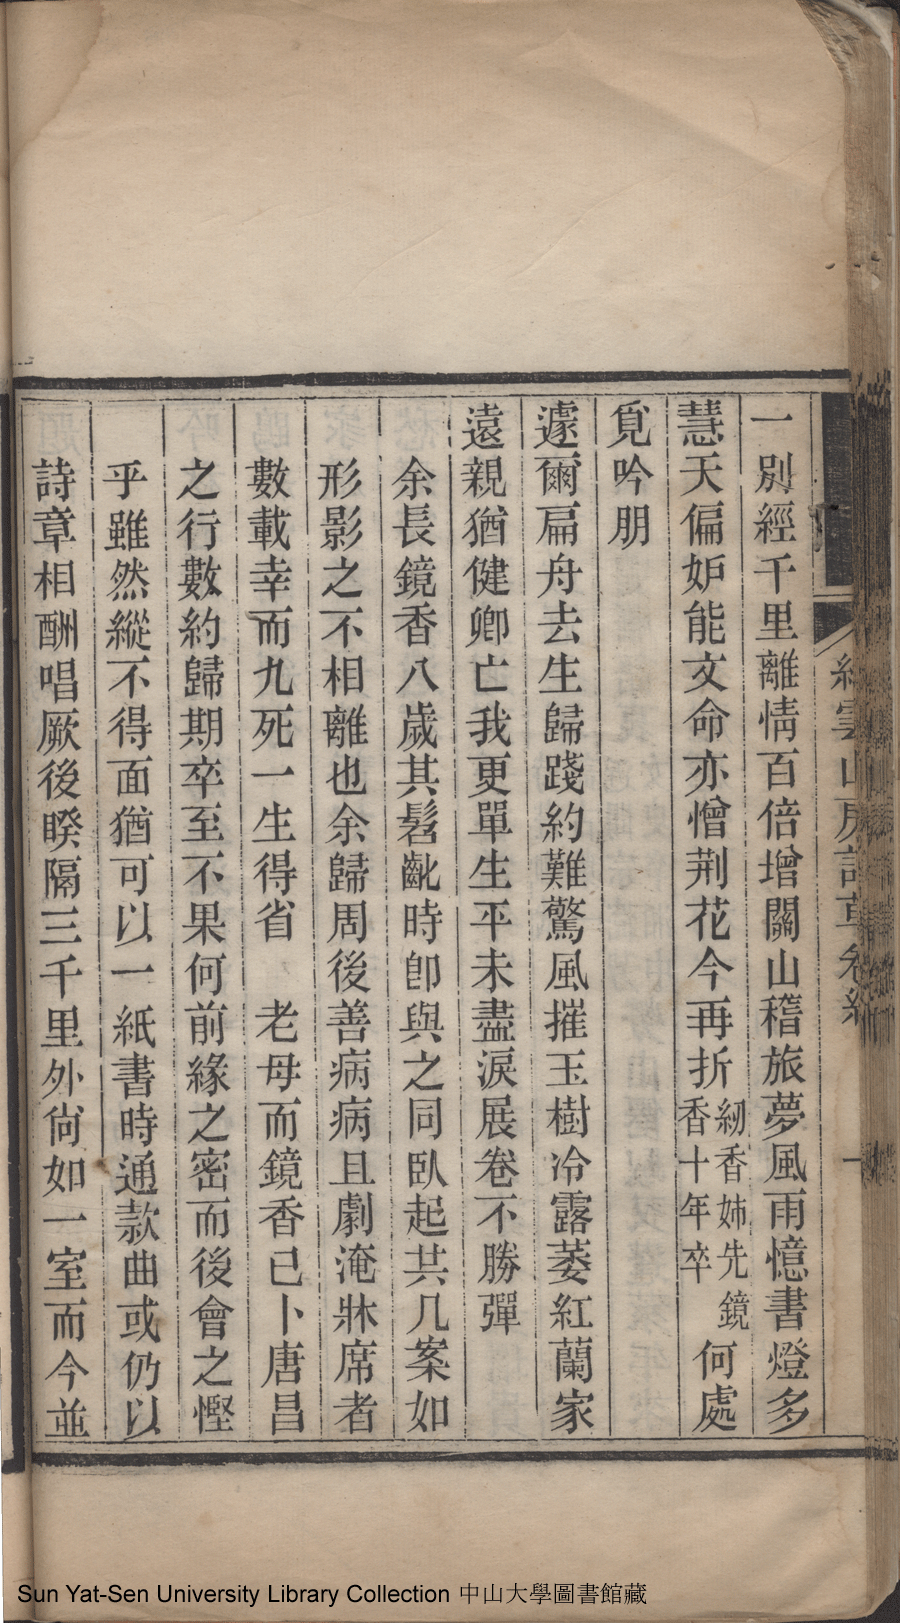 一別經千里離情百倍增關山稽旅夢風雨憶書燈多
慧天偏妒能文命亦憎荆花今再折紉香姊先鏡香十年卒何處
覓吟朋
遽爾扁舟去生歸踐約難驚風摧玉樹冷露萎紅蘭家
遠親猶健卿亡我更單生平未盡淚展卷不勝彈
余長鏡香八歲其髫齔時卽與之同臥起共几案如
形影之不相離也余歸周後善病病且劇淹牀席者
數載幸而九死一生得省 老母而鏡香已卜唐昌
之行數約歸期卒至不果何前緣之密而後會之慳
乎雖然縱不得面猶可以一紙書時通款曲或仍以
詩章相酬唱厥後睽隔三千里外尙如一室而今並
雲山房詩草卷 一
Sun Yat-Sen University Library Collection 中山大學圖書館藏